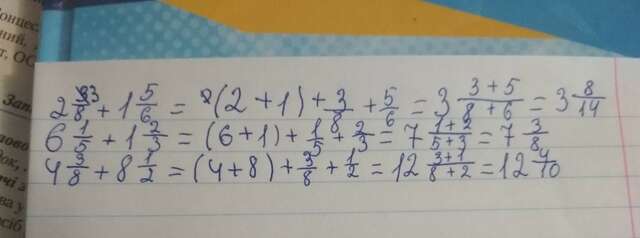 Концес
ний,
т, ОС
Зап
2 3/8 + 1 5/6 = (2 + 1) + 3/8 + 5/6 = 3 (3 + 5)/(8 + 6) = 3 8/14
6 1/5 + 1 2/3 = (6 + 1) + 1/5 + 2/3 = 7 (1 + 2)/(5 + 3) = 7 3/8
4 3/8 + 8 1/2 = (4 + 8) + 3/8 + 1/2 = 12 (3 + 1)/(8 + 2) = 12 4/10